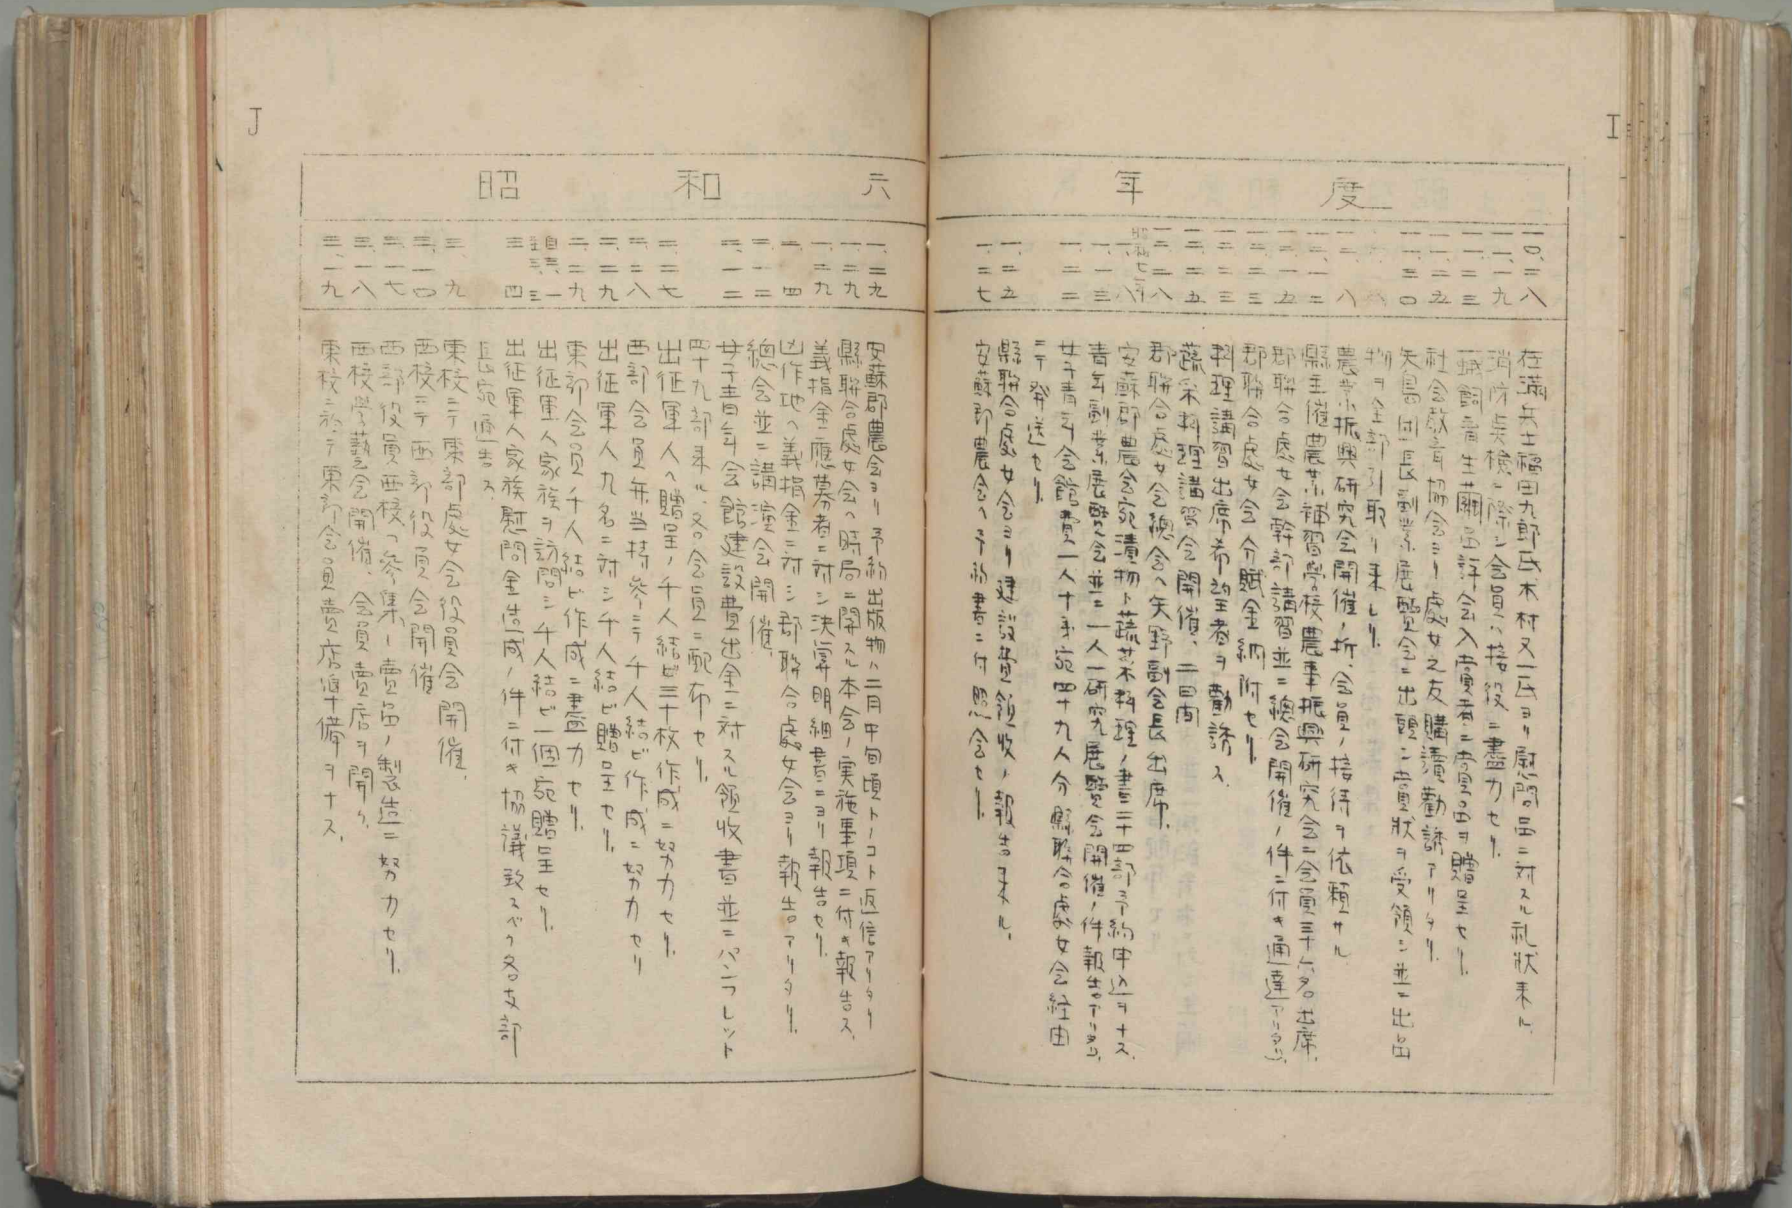 I
度
年
一〇、二八
在満兵士福田九郎氏木村又一氏ヨリ慰問品ニ対スル礼状来ル、
一一、一九
消防点検ニ際シ会員ハ接役ニ盡力セリ、
一一、二三
蚕飼育生繭品評会入賞者ニ賞品ヲ贈呈セリ、
一一、二五
社会教育協会ヨリ處女之友購讀勧誘アリタリ、
一一、三〇
矢島団長副業展覧会ニ出頭シ賞状ヲ受領シ並ニ出品
物ヲ全部引取リ来レリ、
一二、八
農業振興研究会開催ノ折、会員ノ接待ヲ依頼サル
一二、一二
縣主催農業補習學校農事振興研究会ニ会員三十六名出席、
一二、一五
郡聯合處女会幹部講習並ニ總会開催ノ件ニ付キ通達アリタリ、
一二、二三
郡聯合處女会分賦金納附セリ、
一二、二三
料理講習出席希望者ヲ勧誘ス、
一二、二五
蔬菜料理講習会開催、二日間
一二、二八
郡聯合處女会總会ヘ矢野副会長出席、
昭和七年
一、八
安蘇郡農会宛漬物ト蔬菜料理ノ書二十四部予約申込ヲナス、
一、一三
青年副業展覧会並ニ一人一研究展覧会開催ノ件報告アリタリ、
一、二二
女子青年会館費一人十銭宛四十九人分縣聯合處女会経由
ニテ発送セリ、
一、二五
縣聯合處女会ヨリ建設費領收ノ報告来ル、
一、二七
安蘇郡農会ヘ予約書ニ付照会セリ、
J
六
和
昭
一、二九
安蘇郡農会ヨリ予約出版物ハ二月中旬頃トノコト返信アリタリ
一、二九
縣聯合處女会ヘ時局ニ関スル本会ノ実施事項ニ付キ報告ス、
一、二九
義捐金應募者ニ対シ決算明細書ニヨリ報告セリ、
二、四
凶作地ヘ義捐金ニ対シ郡聯合處女会ヨリ報告アリタリ、
二、一二
總会並ニ講演会開催、
二、一二
女子青年会館建設費出金ニ対スル領收書並ニパンフレット
四十九部来ル、各会員ニ配布セリ、
二、二七
出征軍人ヘ贈呈ノ千人結ビ三十枚作成ニ努力セリ、
二、二八
西部会員弁当持参ニテ千人結ビ作成ニ努力セリ
二、二九
出征軍人九名ニ対シ千人結ビ贈呈セリ、
二、二九
東部会員ノ千人結ビ作成ニ盡力セリ、
自三、一
至三、三
出征軍人家族ヲ訪問シ千人結ビ一個宛贈呈セリ、
三、四
出征軍人家族慰問金造成ノ件ニ付キ協議致スベク各支部
長宛通告ス、
三、九
東校ニテ東部處女会役員会開催、
三、一四
西校ニテ西部役員会開催
三、一七
西部役員西校ヘ参集シ賣品ノ製造ニ努力セリ、
三、一八
西校學藝会開催、会員賣店ヲ開ク、
三、一九
東校ニ於テ東部会員賣店準備ヲナス、